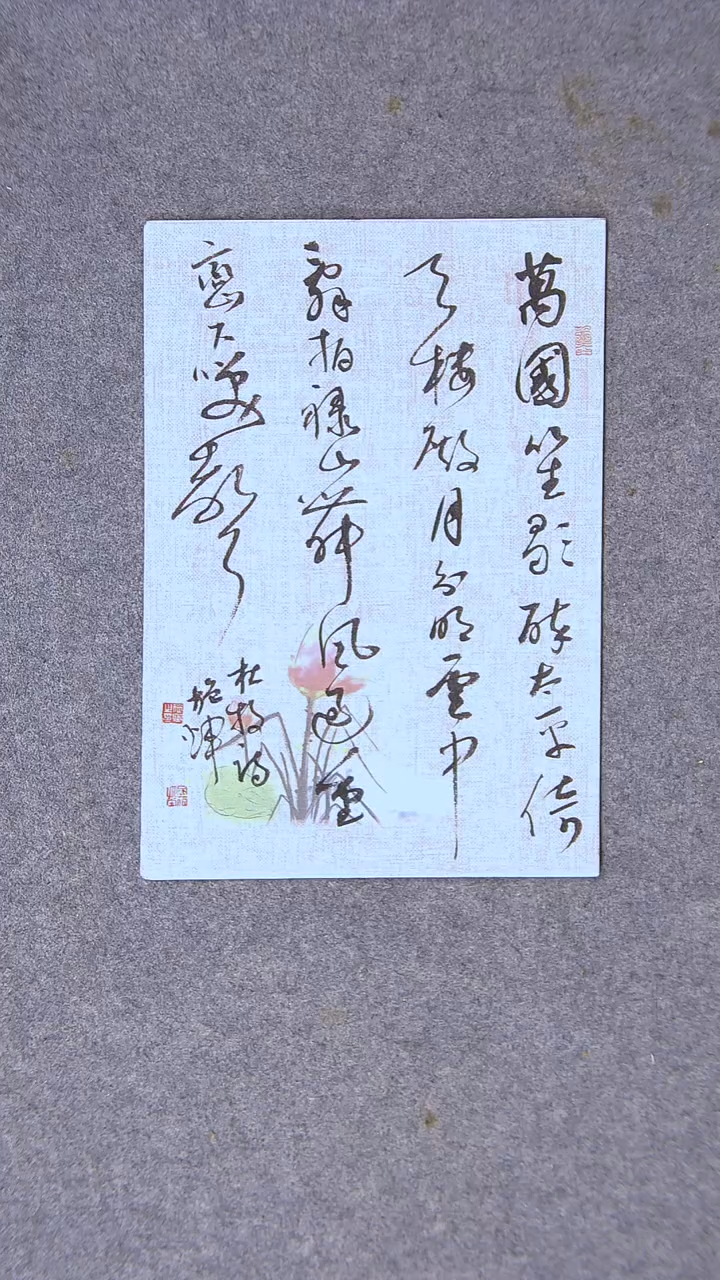 萬國笙歌醉太平倚
天樓殿月分明雲中
亂拍祿山舞風過重
巒下笑聲
杜牧詩